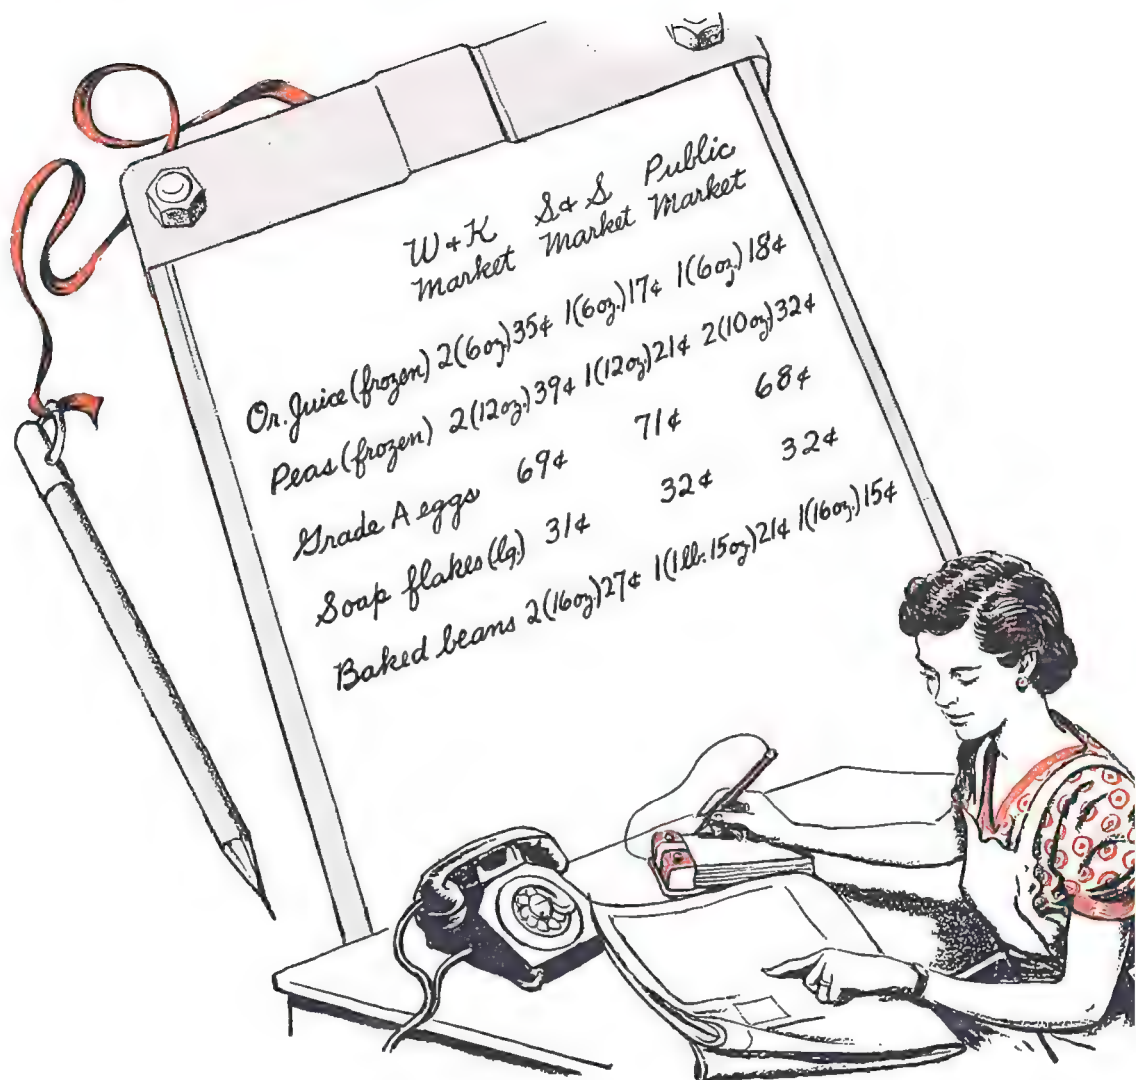 W + K S & S Public
Market Market Market
Or. Juice (frozen) 2(6oz.)35¢ 1(6oz.)17¢ 1(6oz.)18¢
Peas (frozen) 2(12oz.)39¢ 1(12oz.)21¢ 2(10oz)32¢
Grade A eggs 69¢ 71¢ 68¢
Soap flakes (lg.) 31¢ 32¢ 32¢
Baked beans 2(16oz.)27¢ 1(1 lb. 15oz.)21¢ 1(16oz.)15¢